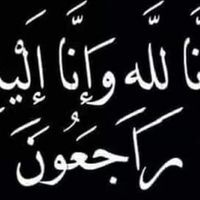 نَّا لله وَإِنَّا إِلَيْ
رَاجَعُونَ